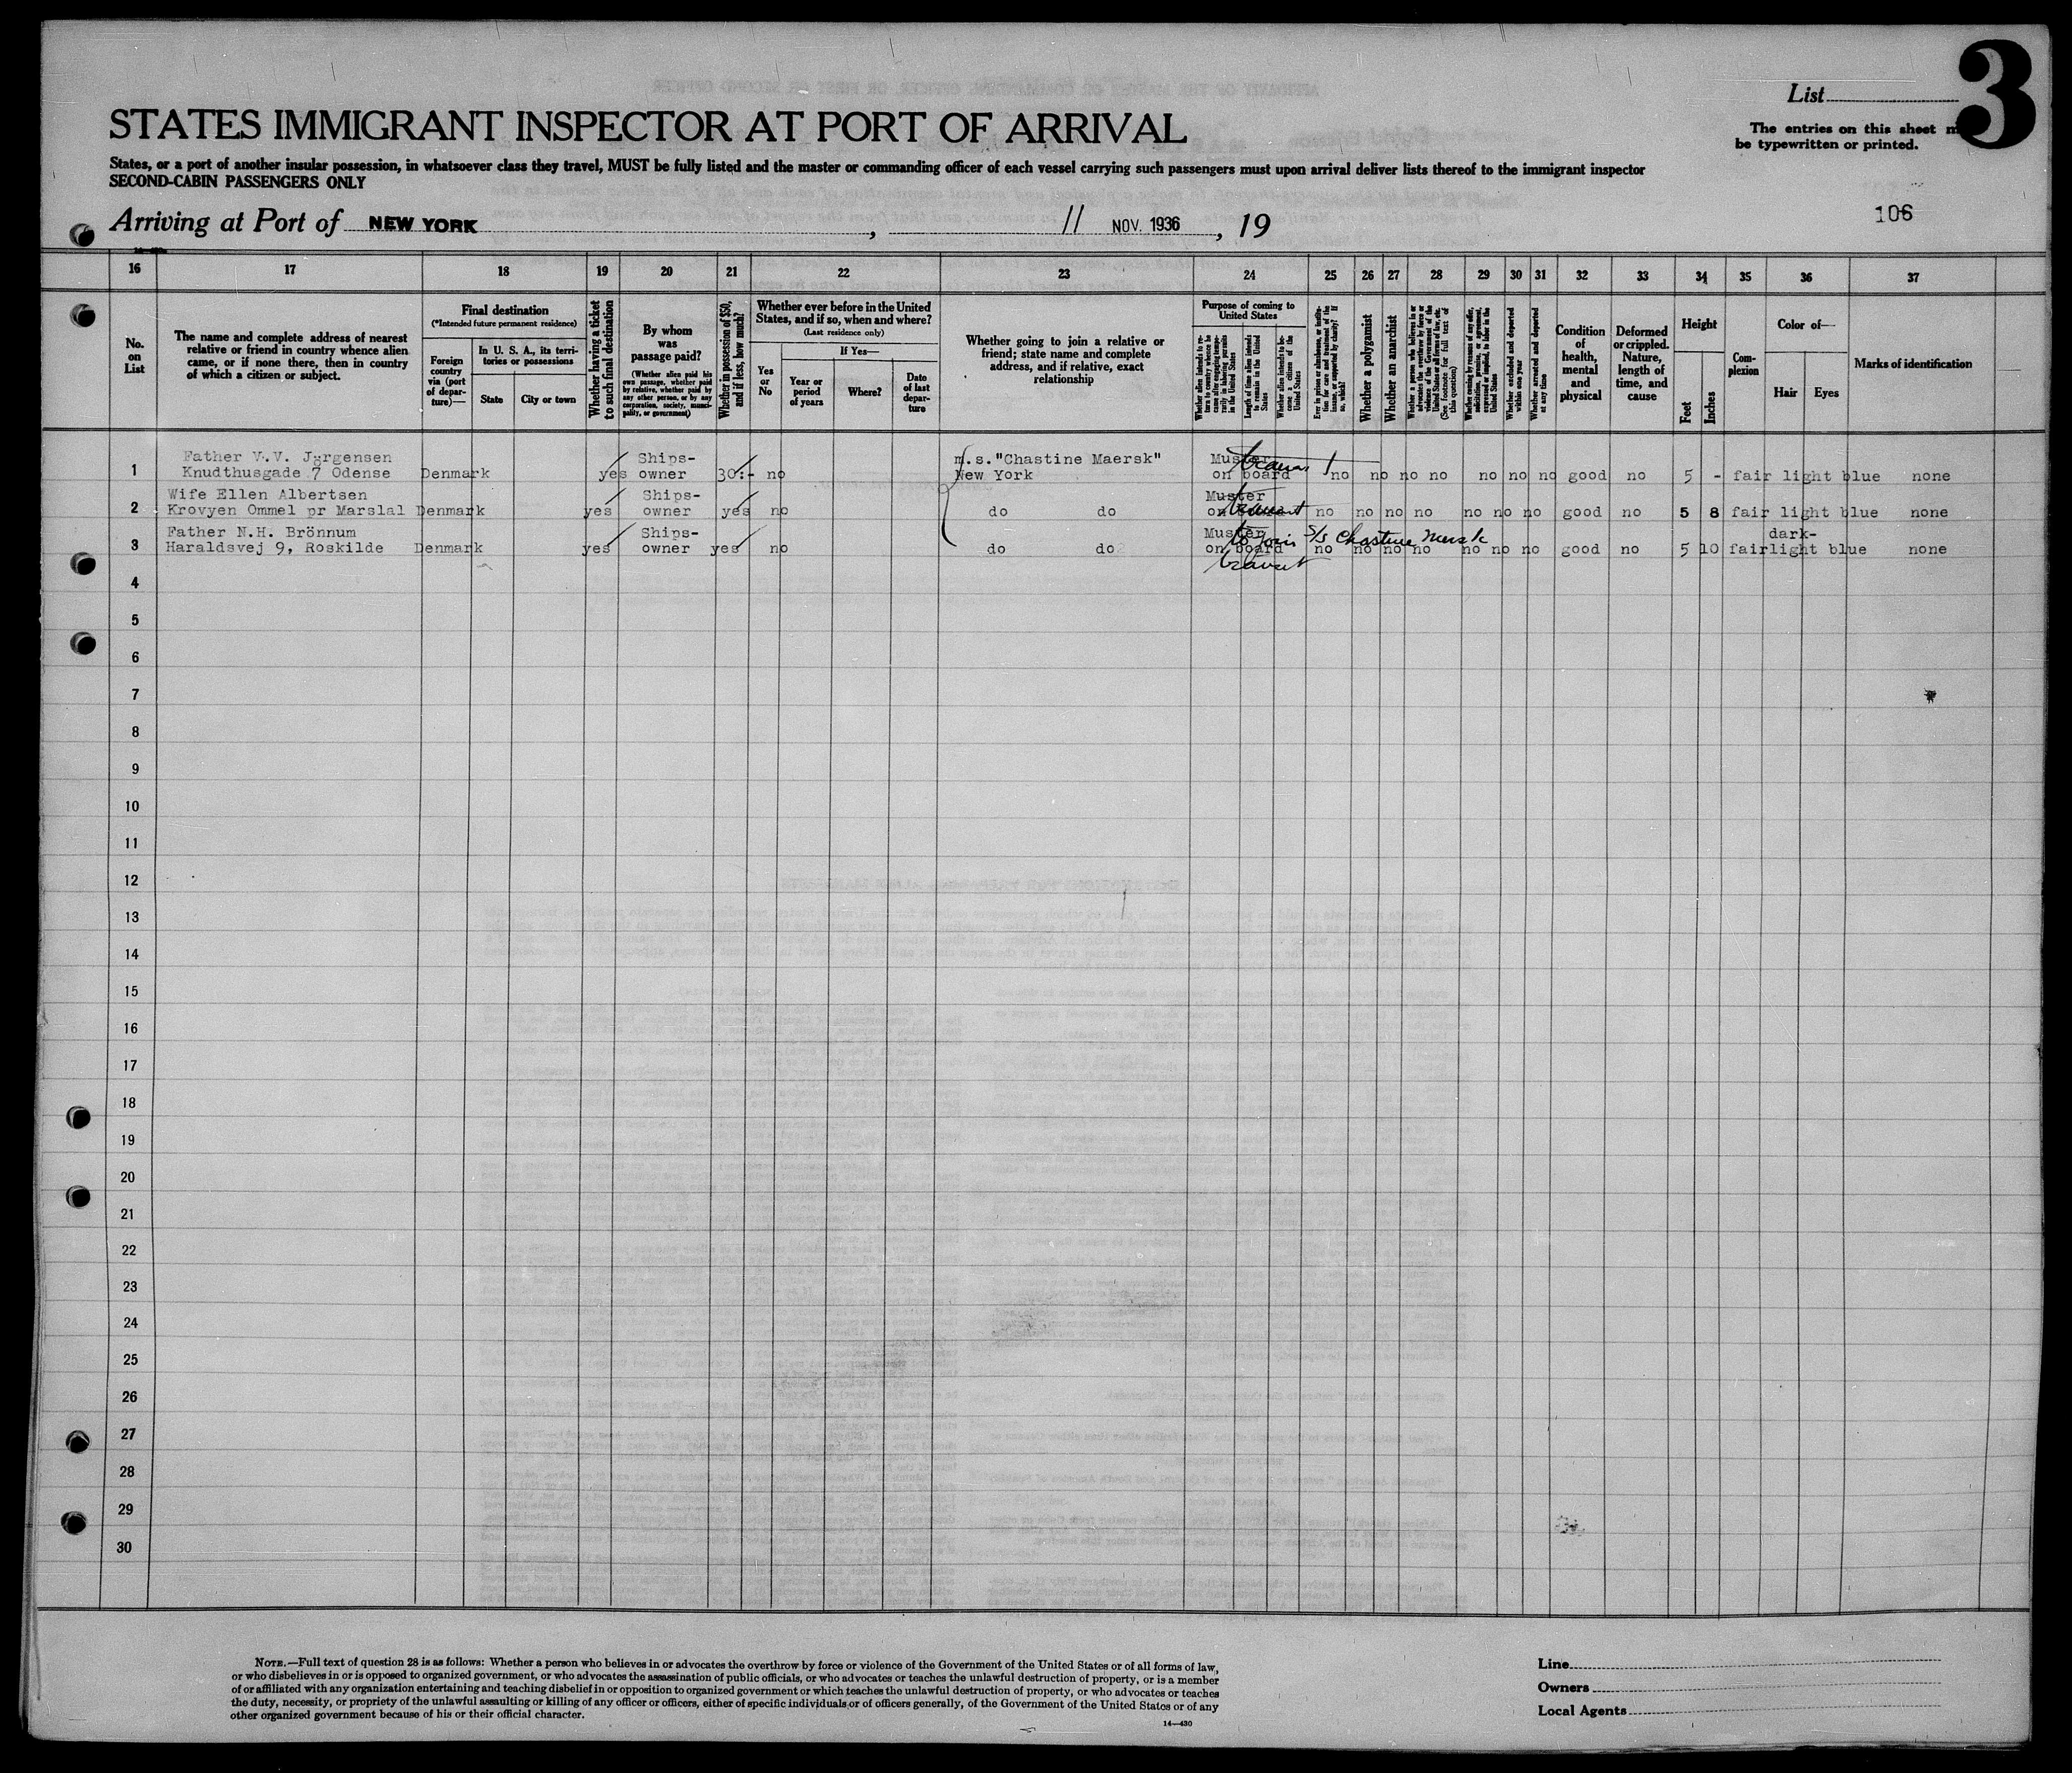 3
List
The entries on this sheet m
be typewritten or printed.
STATES IMMIGRANT INSPECTOR AT PORT OF ARRIVAL
States, or a port of another insular possession, in whatsoever class they travel, MUST be fully listed and the master or commanding officer of each vessel carrying such passengers must upon arrival deliver lists thereof to the immigrant inspector
SECOND-CABIN PASSENGERS ONLY
106
Arriving at Port of NEW YORK, 11 NOV. 1936, 19
16 17 18 19 20 21 22 23 24 25 26 27 28 29 30 31 32 33 34 35 36 37
No. on List
The name and complete address of nearest
relative or friend in country whence alien
came, or if none there, then in country
of which a citizen or subject.
Final destination
(*Intended future permanent residence)
Foreign country via (port of departure)—
In U. S. A., its territories or possessions
State
City or town
Whether having a ticket to such final destination
By whom was passage paid?
(Whether alien paid his own passage, whether paid by relative, whether paid by any other person, or by any corporation, society, municipality, or government)
Whether in possession of $50, and if less, how much?
Whether ever before in the United
States, and if so, when and where?
(Last residence only)
If Yes—
Yes or No
Year or period of years
Where?
Date of last departure
Whether going to join a relative or
friend; state name and complete
address, and if relative, exact
relationship
Purpose of coming to
United States
Whether alien intends to return to country whence he came after engaging temporarily in laboring pursuits in the United States
Length of time alien intends to remain in the United States
Whether alien intends to become a citizen of the United States
Ever in prison or almshouse, or institution for care and treatment of the insane, or supported by charity? If so, which?
Whether a polygamist
Whether an anarchist
Whether a person who believes in or advocates the overthrow by force or violence of the Government of the United States or all forms of law, etc. (See footnote for full text of this question)
Whether coming by reason of any offer, solicitation, promise, or agreement, expressed or implied, to labor in the United States
Whether excluded and deported within one year
Whether arrested and deported at any time
Condition of health, mental and physical
Deformed or crippled. Nature, length of time, and cause
Height
Feet
Inches
Complexion
Color of—
Hair
Eyes
Marks of identification
Father V.V. Jørgensen Ships- m.s. "Chastine Maersk" Muster
1 Knudthusgade 7 Odense Denmark yes owner 30:- no New York on board no no no no no no no good no 5 - fair light blue none
Wife Ellen Albertsen Ships- Muster
2 Krovyen Ommel pr Marslal Denmark yes owner yes no do do on board transit no no no no no no no good no 5 8 fair light blue none
Father N.H. Brönnum Ships- Muster to join S/s Chastine Mersk dark-
3 Haraldsvej 9, Roskilde Denmark yes owner yes no do do on board no no no no no no no good no 5 10 fair light blue none
transit
4
5
6
7
8
9
10
11
12
13
14
15
16
17
18
19
20
21
22
23
24
25
26
27
28
29
30
NOTE.—Full text of question 28 is as follows: Whether a person who believes in or advocates the overthrow by force or violence of the Government of the United States or of all forms of law,
or who disbelieves in or is opposed to organized government, or who advocates the assassination of public officials, or who advocates or teaches the unlawful destruction of property, or is a member
of or affiliated with any organization entertaining and teaching disbelief in or opposition to organized government or which teaches the unlawful destruction of property, or who advocates or teaches
the duty, necessity, or propriety of the unlawful assaulting or killing of any officer or officers, either of specific individuals or of officers generally, of the Government of the United States or of any
other organized government because of his or their official character.
14—430
Line
Owners
Local Agents